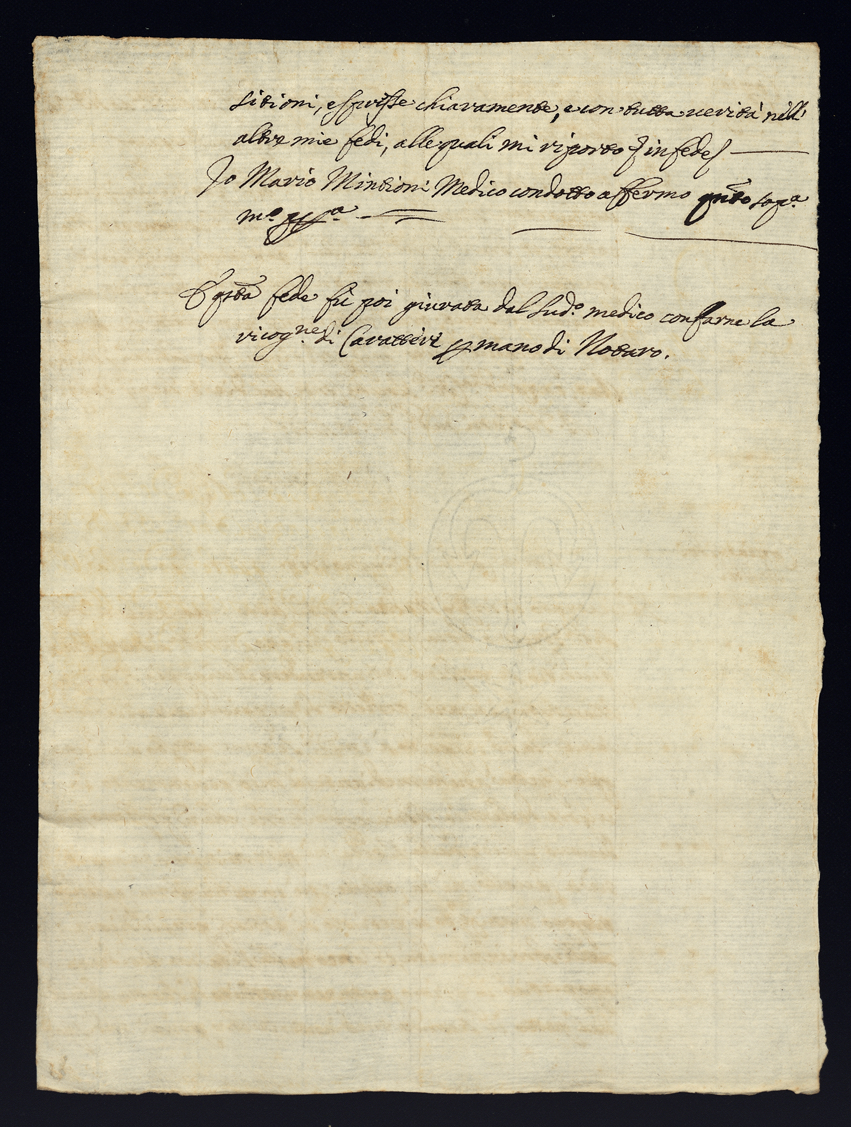 sitioni, espresse chiaramente, e con tutta verità nell'
altre mie fedi, alle quali mi riporto in fede
Io Mario Mintioni Medico condotto affermo qnto sopa
mo
Et qsta fede fù poi giurata dal sudo. medico con farne la
ricogne. di Caratteri p mano di Notaro.